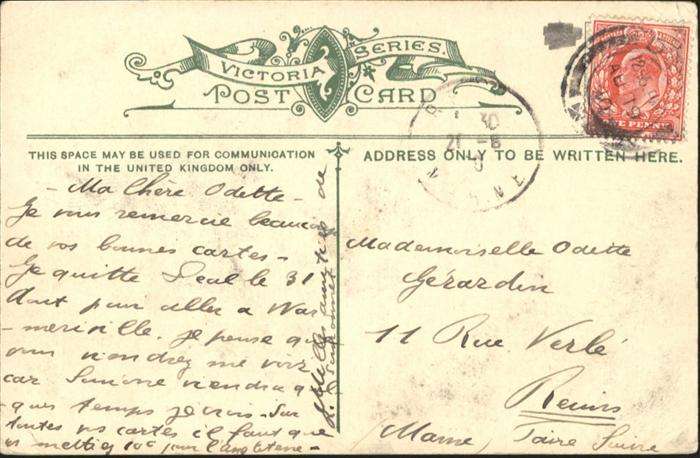 VICTORIA SERIES.
POST CARD
THIS SPACE MAY BE USED FOR COMMUNICATION
IN THE UNITED KINGDOM ONLY.
ADDRESS ONLY TO BE WRITTEN HERE.
E PENNY
- Ma Chère Odette -
Je vous remercie beaucoup
de vos bonnes cartes -
Je quitte Seal le 31
Aout pour aller a War
- meriville. Je pense que
vous viendrez me voir
car Simone viendra q
ques temps je crois - Sur
toutes vos cartes il faut que
mettiez 10c pour l'angleterre -
Mademoiselle Odette
Gérardin
11 Rue Verlé
Reims
(Marne) Faire Suivre